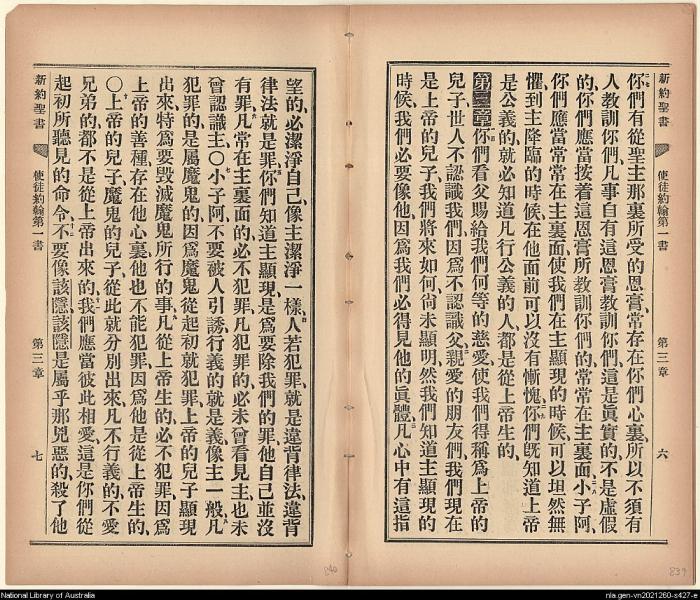 新約聖書 使徒約翰第一書 第三章 六
你們有從聖主那裏所受的恩膏、常存在你們心裏、所以不須有
人教訓你們、凡事自有這恩膏教訓你們、這是眞實的、不是虛假
的、你們應當按着這恩膏所教訓你們的、常常在主裏面、小子阿、
你們應當常常在主裏面、使我們在主顯現的時候、可以坦然無
懼、到主降臨的時候、在他面前可以沒有慚愧、你們旣知道上帝
是公義的、就必知道凡行公義的人、都是從上帝生的、
第三章 你們看父賜給我們何等的慈愛、使我們得稱爲上帝的
兒子、世人不認識我們、因爲不認識父、親愛的朋友們、我們現在
是上帝的兒子、我們將來如何、尙未顯明、然我們知道主顯現的
時候、我們必要像他、因爲我們必得見他的眞體、凡心中有這指
望的、必潔淨自己、像主潔淨一樣、人若犯罪、就是違背律法、違背
律法就是罪、你們知道主顯現、是爲要除我們的罪、他自己並沒
有罪、凡常在主裏面的、必不犯罪、凡犯罪的、必未曾看見主、也未
曾認識主、〇小子阿、不要被人引誘、行義的就是義、像主一般、凡
犯罪的、是屬魔鬼的、因爲魔鬼從起初就犯罪、上帝的兒子顯現
出來、特爲要毀滅魔鬼所行的事、凡從上帝生的、必不犯罪、因爲
上帝的善種、存在他心裏、他也不能犯罪、因爲他是從上帝生的、
〇上帝的兒子、魔鬼的兒子、從此就分別出來、凡不行義的、不愛
兄弟的、都不是從上帝出來的、我們應當彼此相愛、這是你們從
起初所聽見的命令、不要像該隱、該隱是屬乎那兇惡的、殺了他
新約聖書 使徒約翰第一書 第三章 七
840
839
National Library of Australia
nla.gen-vn2021260-s427-e